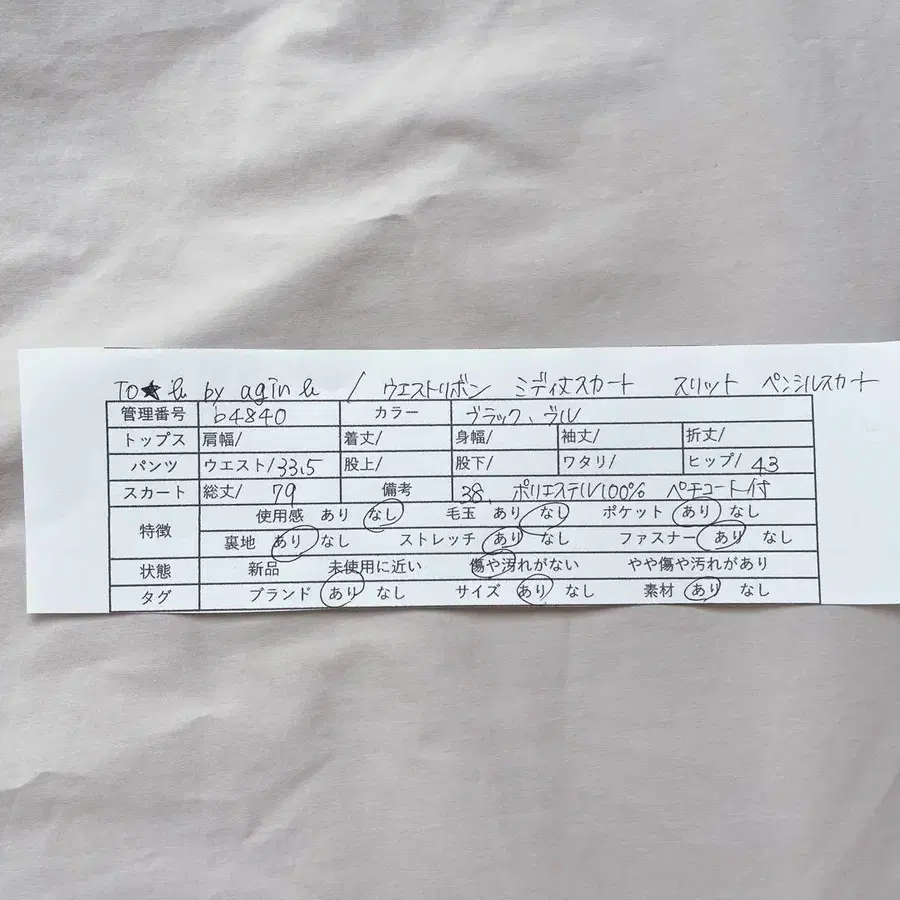 TO★ by agin / ウエストリボン ミディ丈スカート スリット ペンシルスカート
管理番号 b4840 カラー ブラック、
トップス 肩幅/ 着丈/ 身幅/ 袖丈/ 折丈/
パンツ ウエスト/33.5 股上/ 股下/ ワタリ/ ヒップ/ 43
スカート 総丈/ 79 備考 38、ポリエステル100% ペチコート付
特徴 使用感 あり なし 毛玉 あり なし ポケット あり なし
裏地 あり なし ストレッチ あり なし ファスナー あり なし
状態 新品 未使用に近い 傷や汚れがない やや傷や汚れがあり
タグ ブランド あり なし サイズ あり なし 素材 あり なし